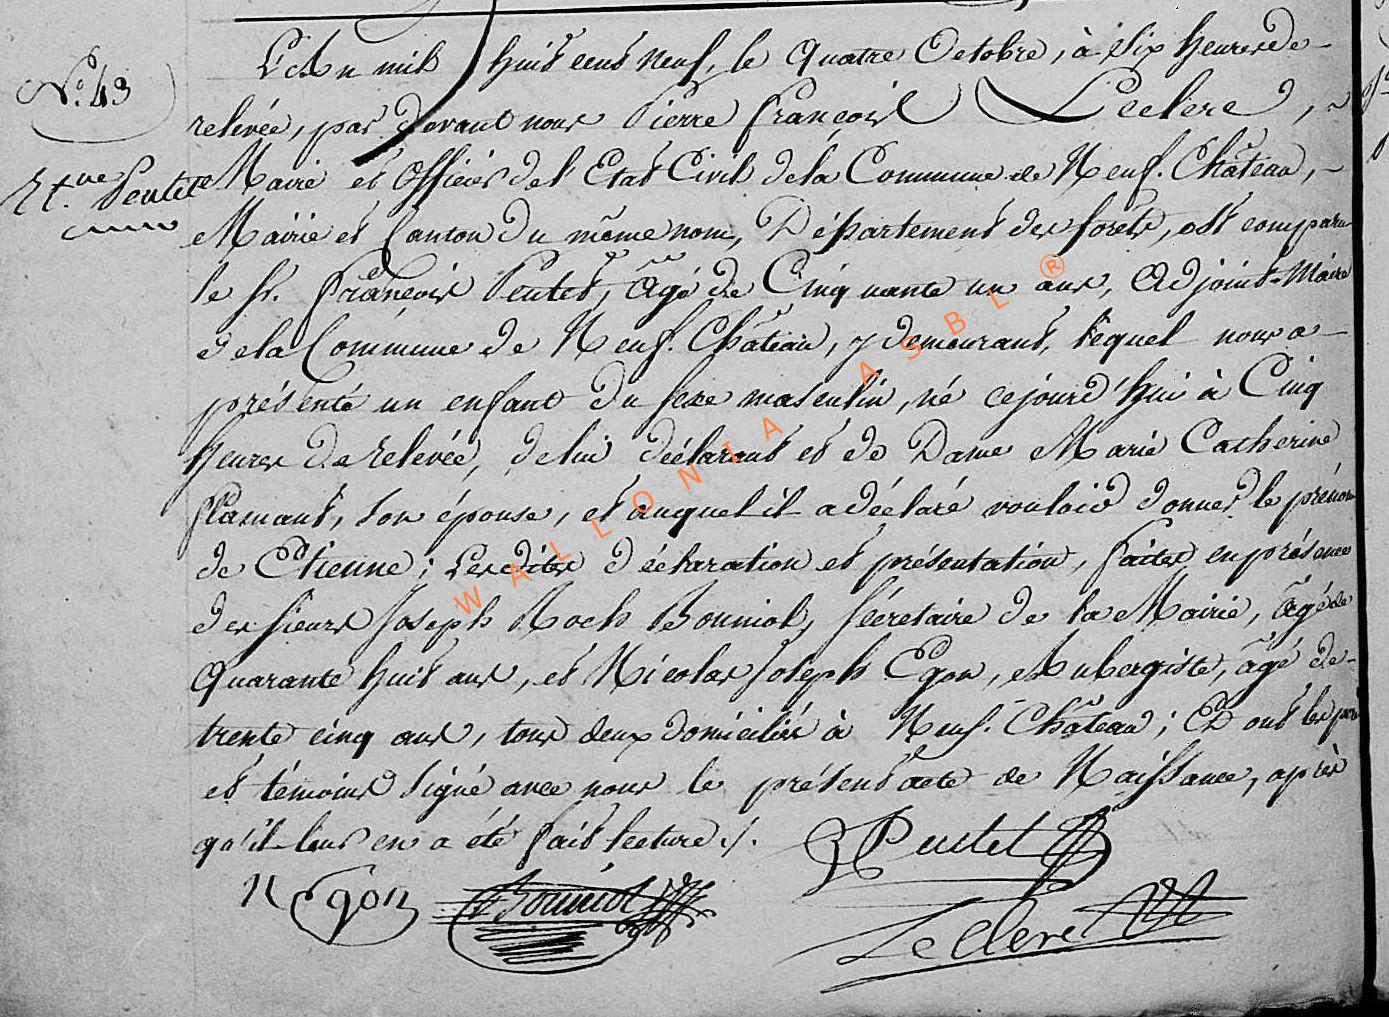 N.º 43
Et.ne Peutet
L'An mil huit cent neuf, le quatre Octobre, à six heures de
relevée, par devant nous Pierre François Leclere,
Maire et Officier de l'Etat Civil de la Commune de Neuf-Château,
Mairie et Canton du même nom, Département des forêts, est comparu
le Sr. François Peutet, âgé de Cinquante un ans, Adjoint-Maire
de la Commune de Neuf-Château, y demeurant, lequel nous a
présenté un enfant du sexe masculin, né cejourd'hui à Cinq
heures de relevée, de lui déclarant et de Dame Marie Catherine
flamant, son épouse, et auquel il a déclaré vouloir donner le prénom
de Etienne ; Lesdites déclaration et présentation, faites en présence
des sieurs Joseph Roch Bouniol, sécretaire de la Mairie, âgé de
Quarante huit ans, et Nicolas Joseph Egon, Aubergiste, âgé de
trente cinq ans, tous deux domiciliés à Neuf-Château ; Et ont les père
et témoins signé avec nous le présent acte de Naissance, après
qu'il leur en a été fait lecture ./.
Peutet
N Egon Bouniol
Leclere
WALLONIA ASBL ®